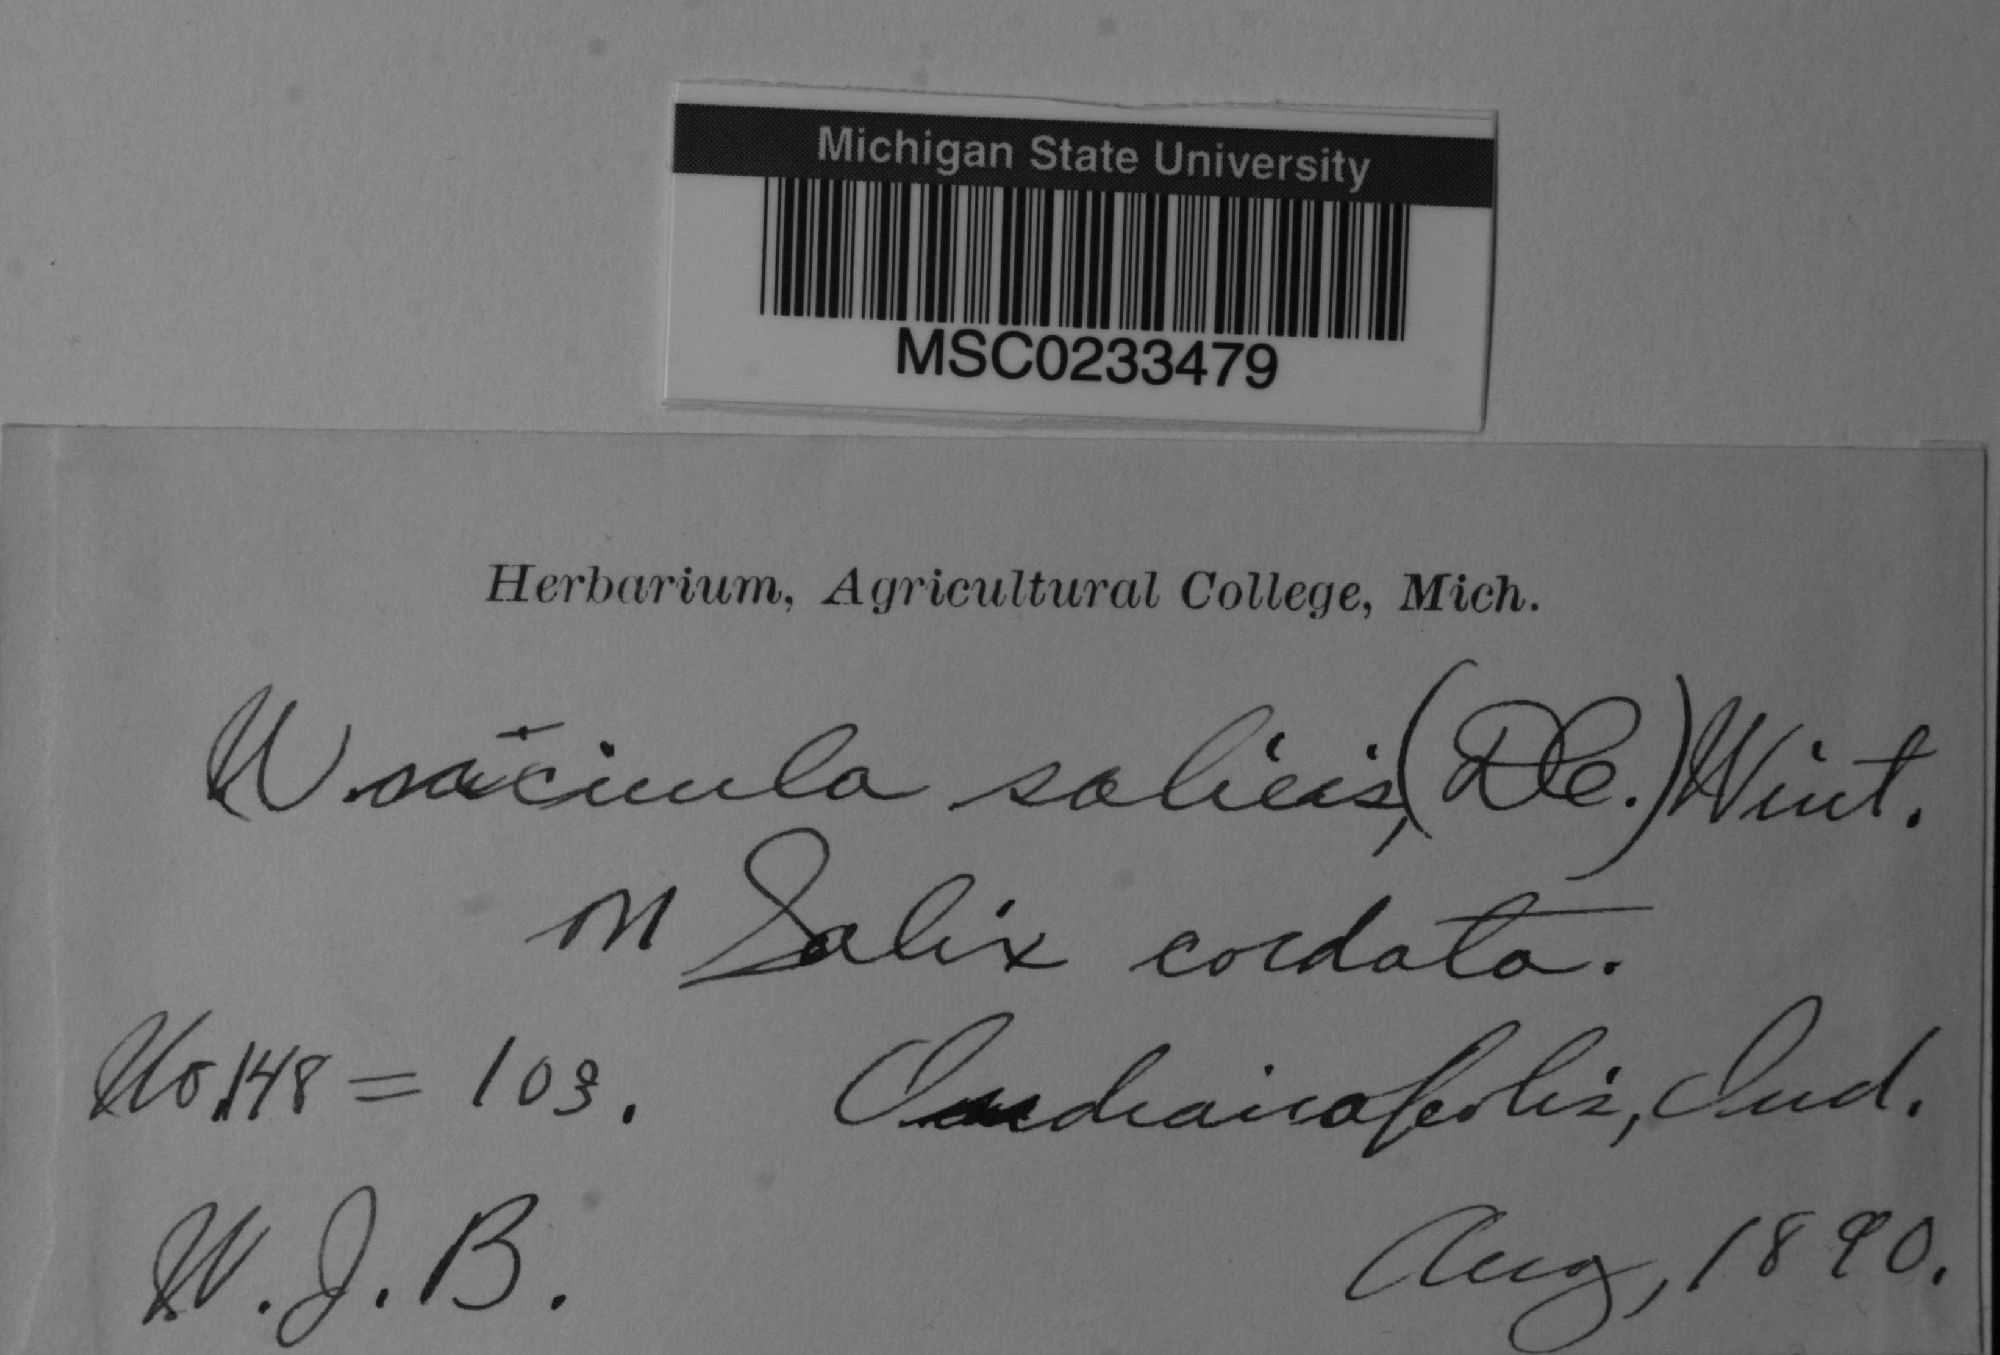 Michigan State University
MSC0233479
Herbarium, Agricultural College, Mich.
Uncinula salicis, (DC.) Wint.
on Salix cordata.
No. 148 = 103. Indianapolis, Ind.
W. J. B. Aug, 1890.